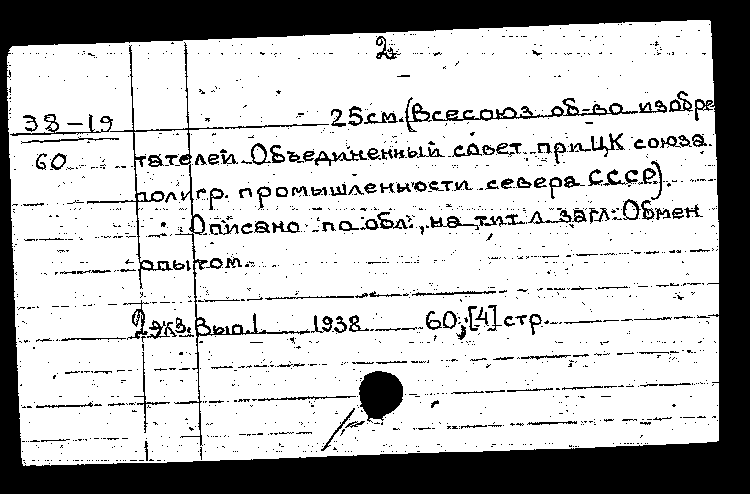 2.
38-19 25 см. (Всесоюз об-во изобре
60 тателей Объединенный совет при ЦК союза
полигр. промышленности севера СССР).
Описано по обл., на тит л загл: Обмен
опытом.
2 экз. Вып. 1. 1938 60, [4] стр.